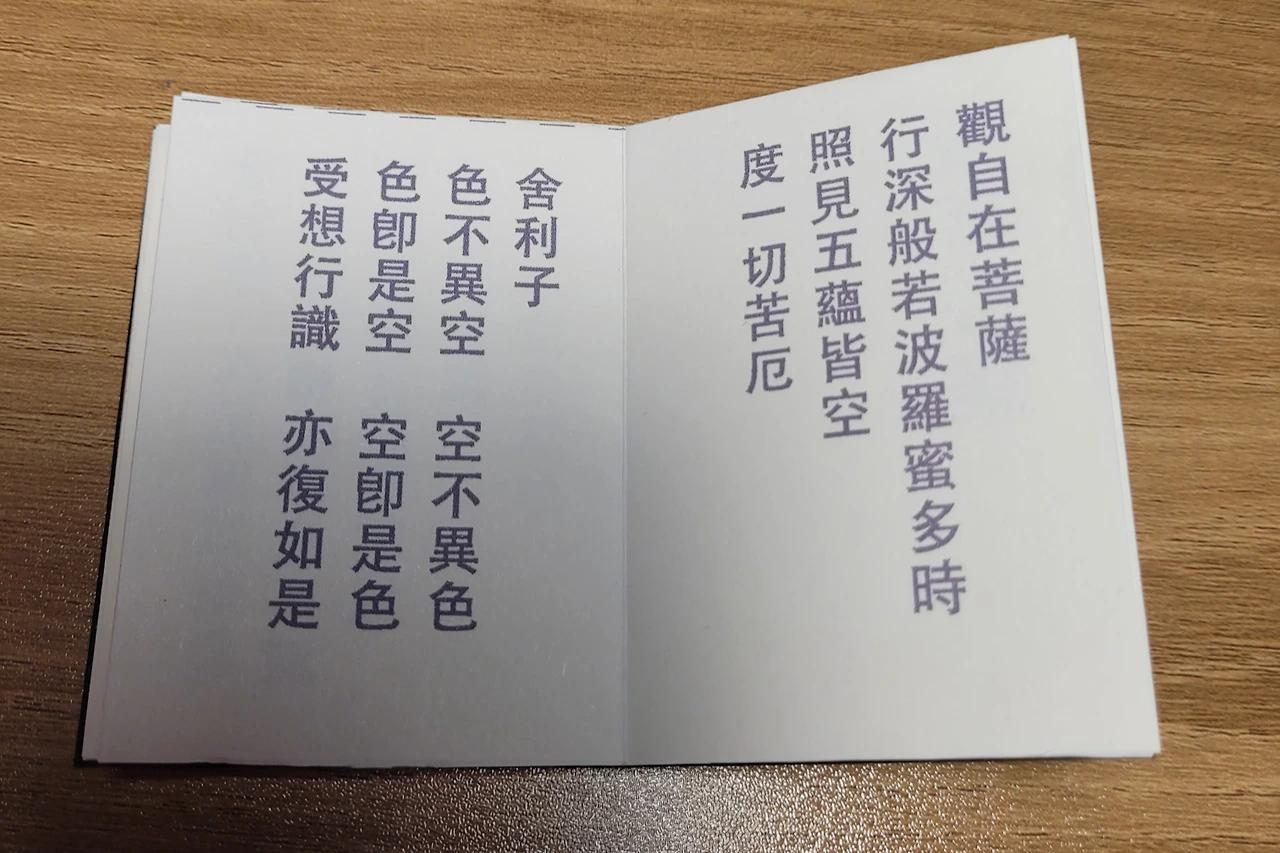 觀自在菩薩
行深般若波羅蜜多時
照見五蘊皆空
度一切苦厄
舍利子
色不異空　空不異色
色卽是空　空卽是色
受想行識　亦復如是